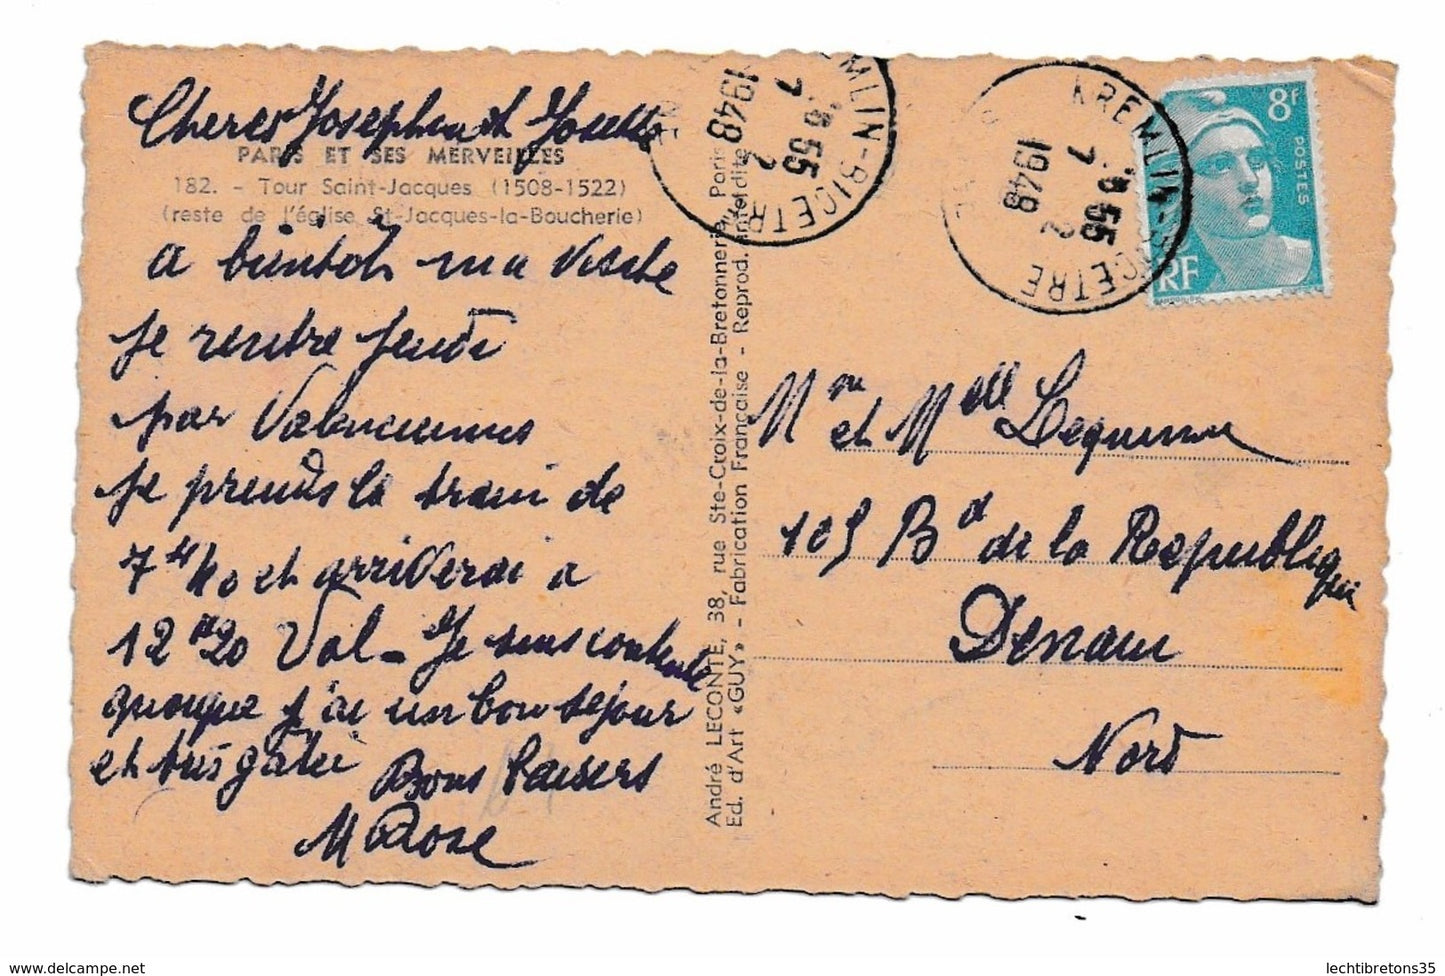 Cheres Josephe et Josette
PARIS ET SES MERVEILLES
182. - Tour Saint-Jacques (1508-1522)
(reste de l'église St-Jacques-la-Boucherie)
a bientôt ma visite
je rentre jeudi
par Valenciennes
je prends le train de
7 H 40 et arriverai a
12 H 20 Val - Je suis contente
quoique j'ai un bon sejour
et très gâtée Bons baisers
M Rose
André LECONTE, 38, rue Ste-Croix-de-la-Bretonnerie, Paris
Ed. d'Art «GUY» - Fabrication Française - Reprod. interdite
KREMLIN-BICETRE
8 55
7 2
1948
KREMLIN-BICETRE
8 55
7 2
1948
8F
POSTES
RF
Mme et Melle Lequenne
105 Bd de la Republique
Denain
Nord
lechtibretons35